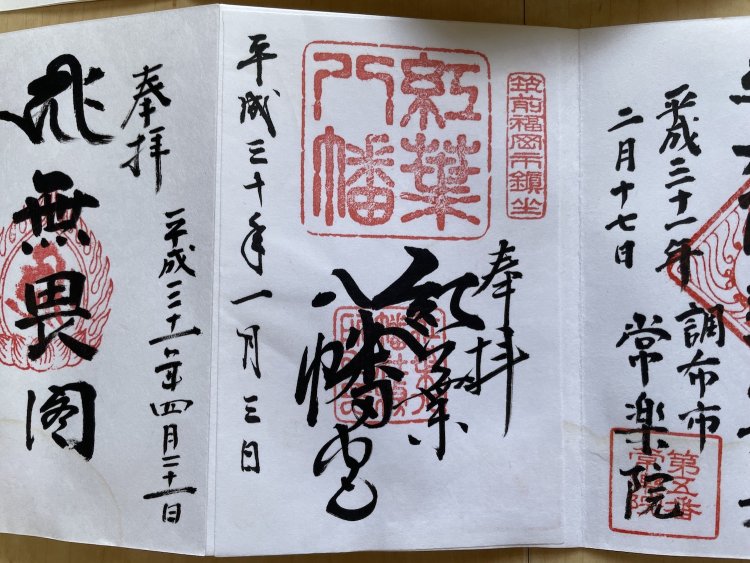 平成三十一年
二月十七日
調布市
常楽院
第五番
筑前福岡市鎮坐
紅葉
八幡
奉拝
紅葉
八幡宮
平成三十年一月三日
奉拝
平成三十一年四月二十一日
無畏閣